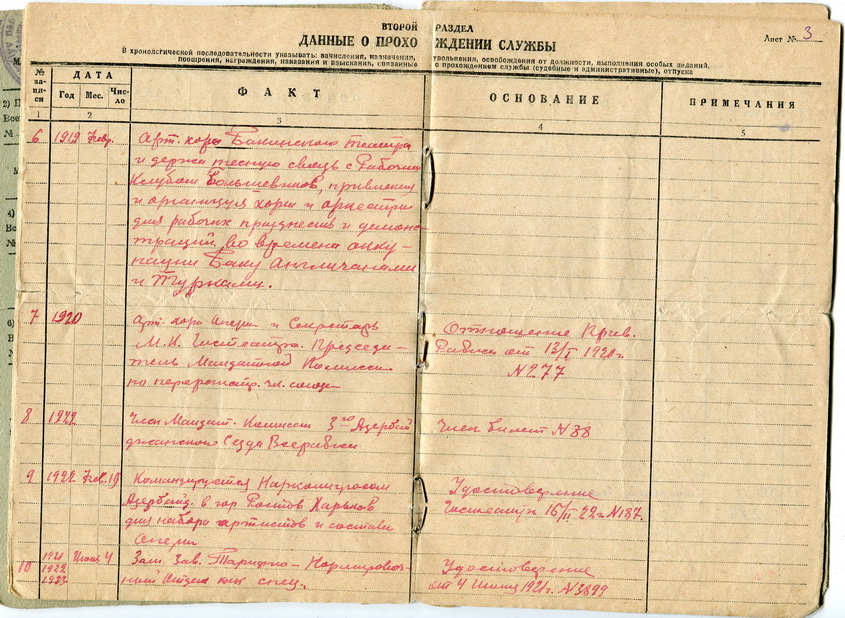 ВТОРОЙ РАЗДЕЛ
ДАННЫЕ О ПРОХОЖДЕНИИ СЛУЖБЫ
Лист № 3
В хронологической последовательности указывать: зачисления, назначения, увольнения, освобождения от должности, выполнения особых заданий,
поощрения, награждения, наказания и взыскания, связанные с прохождением службы (судебные и административные), отпуска
№ записи
ДАТА
Год Мес. Число
ФАКТ
ОСНОВАНИЕ
ПРИМЕЧАНИЯ
1 2 3 4 5
6 1919 Февр. Арт. хора Бакинского театра
и держа тесную связь с Рабочим
Клубом Большевиков, привлекая
и организуя хоры и оркестры
для рабочих празднеств и демонс-
траций во времена окку-
пации Баку Англичанами
и Турками.
7 1920 Арт. хора оперы и Секретарь
М.К. Гостеатра. Председа-
тель Мандатной Комиссии
по перерегистр. чл. союза
Отношение Прав.
Рабиса от 13/I 1920 г.
№ 277
8 1922 Член Мандат. Комиссии 3го Азербай
джанского Сезда Всерабиса
Член билет № 38
9 1922 Фев. 19 Командируется Наркомпросом
Азербайд. в гор Ростов Харьков
для набора артистов и состава
Оперы
Удостоверение
Гостеатра 16/II 22 г. № 187.
10 1921 1922 1923 Июня 4 Зам. Зав. Тарифно-Нормировоч-
ный Отдел как спец.
Удостоверение
от 4 Июня 1921 г. № 3899